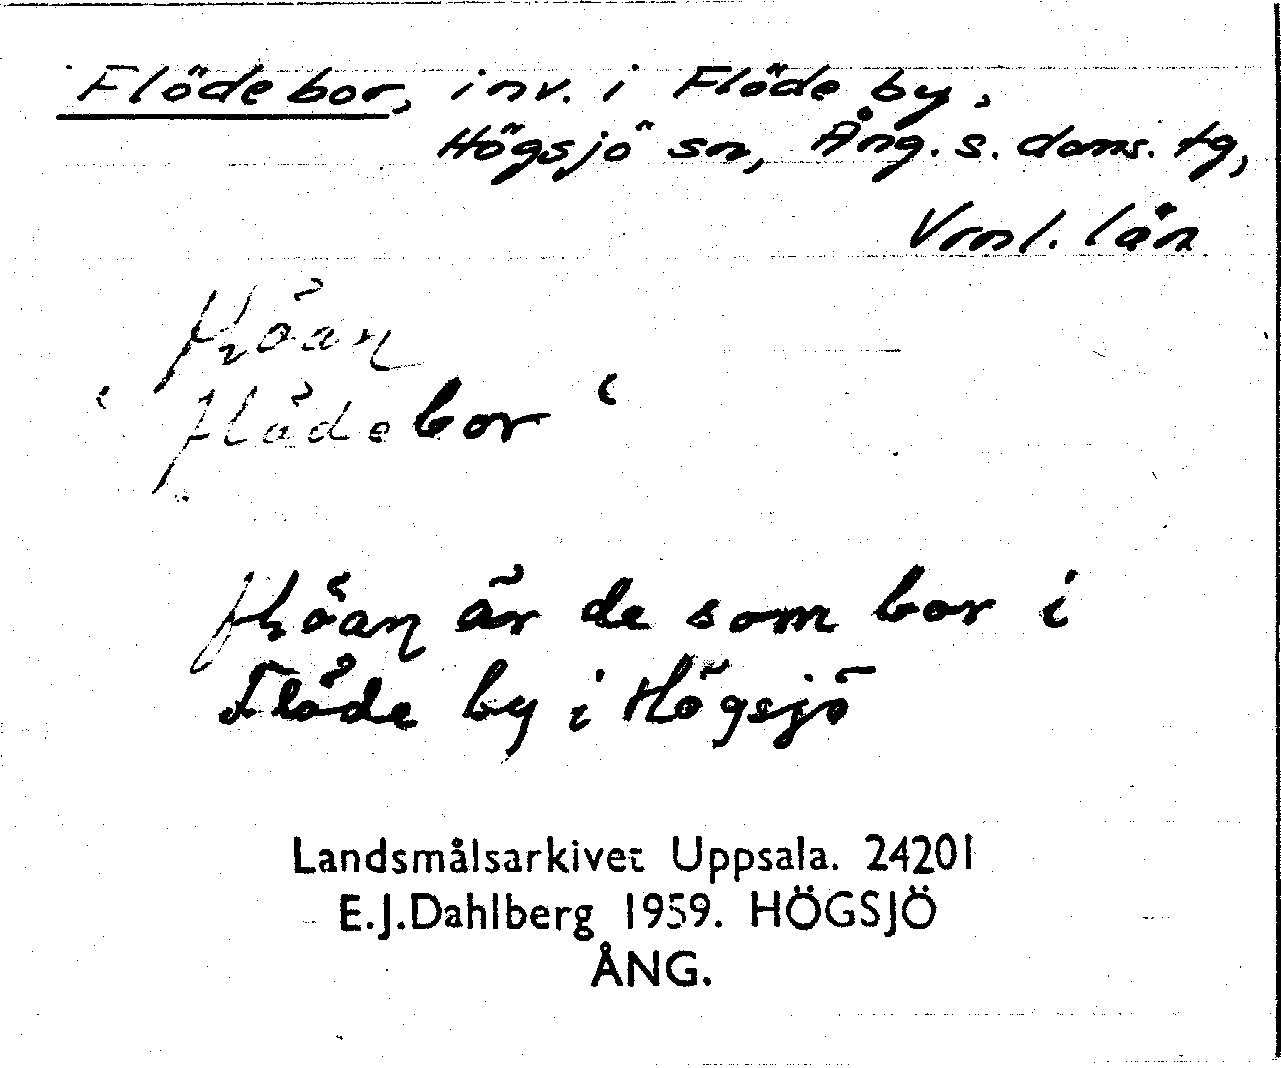 Flödebor, inv. i Flöde by,
Högsjö sn, Ång. s. doms. tg,
Vrnl. län
flöan
"flödebor"
flöan är de som bor i
Flöde by i Högsjö
Landsmålsarkivet Uppsala. 24201
E.J.Dahlberg 1959. HÖGSJÖ
ÅNG.